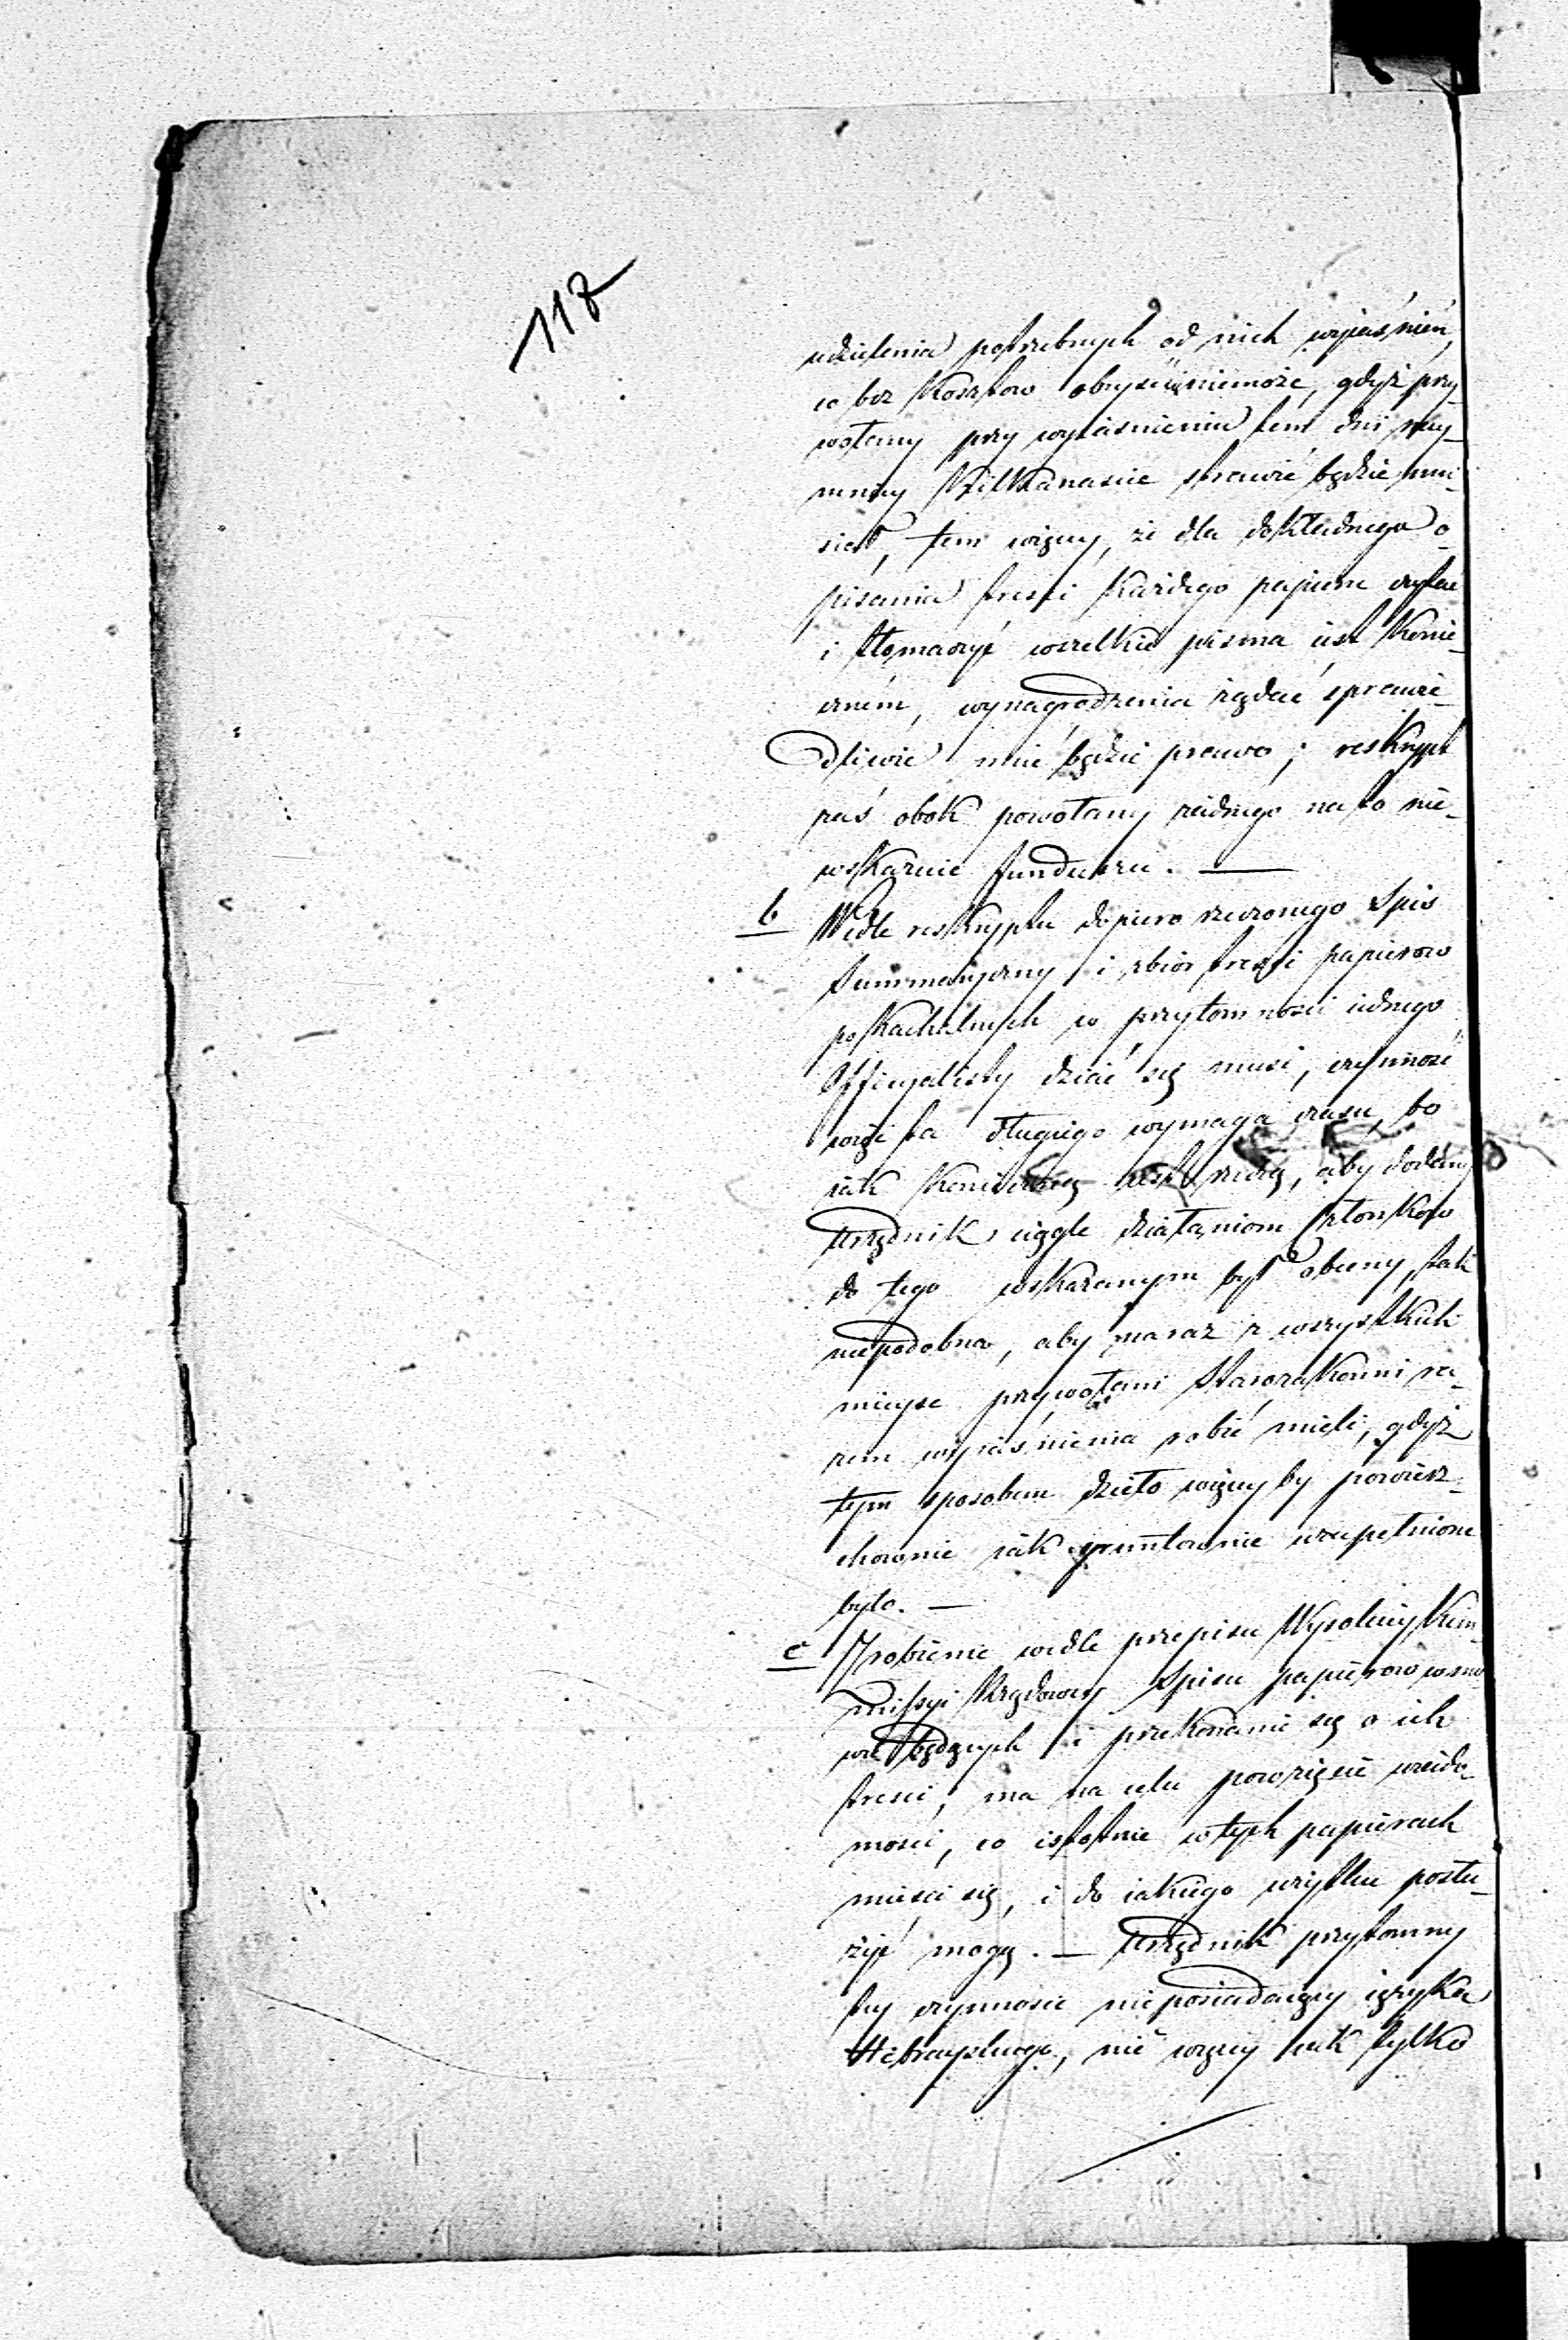 118
udzielenia potrzebnych od nich wyjaśnień,
co bez kosztow obeyść się niemoże, gdyż przy-
wołany przy wyjaśnieniu tem dni nay-
mniey kilkanaście strawić będzie mu-
siał, tem więcey, że dla dokładnego o-
pisania treści każdego papieru czytać
i tłomaczyć wszelkie pisma iest konie-
cznem, wynagrodzenia żądać sprawie-
dliwie mieć będzie prawo; reskrypt
zaś obok powołany żadnego na to nie-
wskazuie funduszu. —
b Wedle reskryptu dopiero rzeczonego Spis
Summaryczny i zbiór treści papierow
po Kachalnych w przytomności iednego
Officyalisty dziać się musi, czynność
więc ta długiego wymaga czasu, bo
iak konieczną iest rzeczą, aby dodany
Urzędnik ciągle działaniom Członkow
do tego wskazanym był obecny, tak
niepodobna, aby naraz z wszystkich
mieysc przywołani Starozakonni ra-
zem wyjaśnienia robić mieli, gdyż
tym sposobem dzieło więcey by powierz-
chownie iak gruntownie uzupełnione
było. —
c Zrobienie wedle przepisu Wysokiey Kom-
missyi Rządowey Spisu papierow w mo-
wie będących i przekonanie się o ich
treści, ma na celu powzięcie wiado-
mości, co istotnie w tych papierach
mieści się, i do iakiego użytku posłu-
żyć mogą. — Urzędnik przytomny
tey czynności nieposiadaiący ięzyka
Hebrayskiego, nic więcey iak tylko